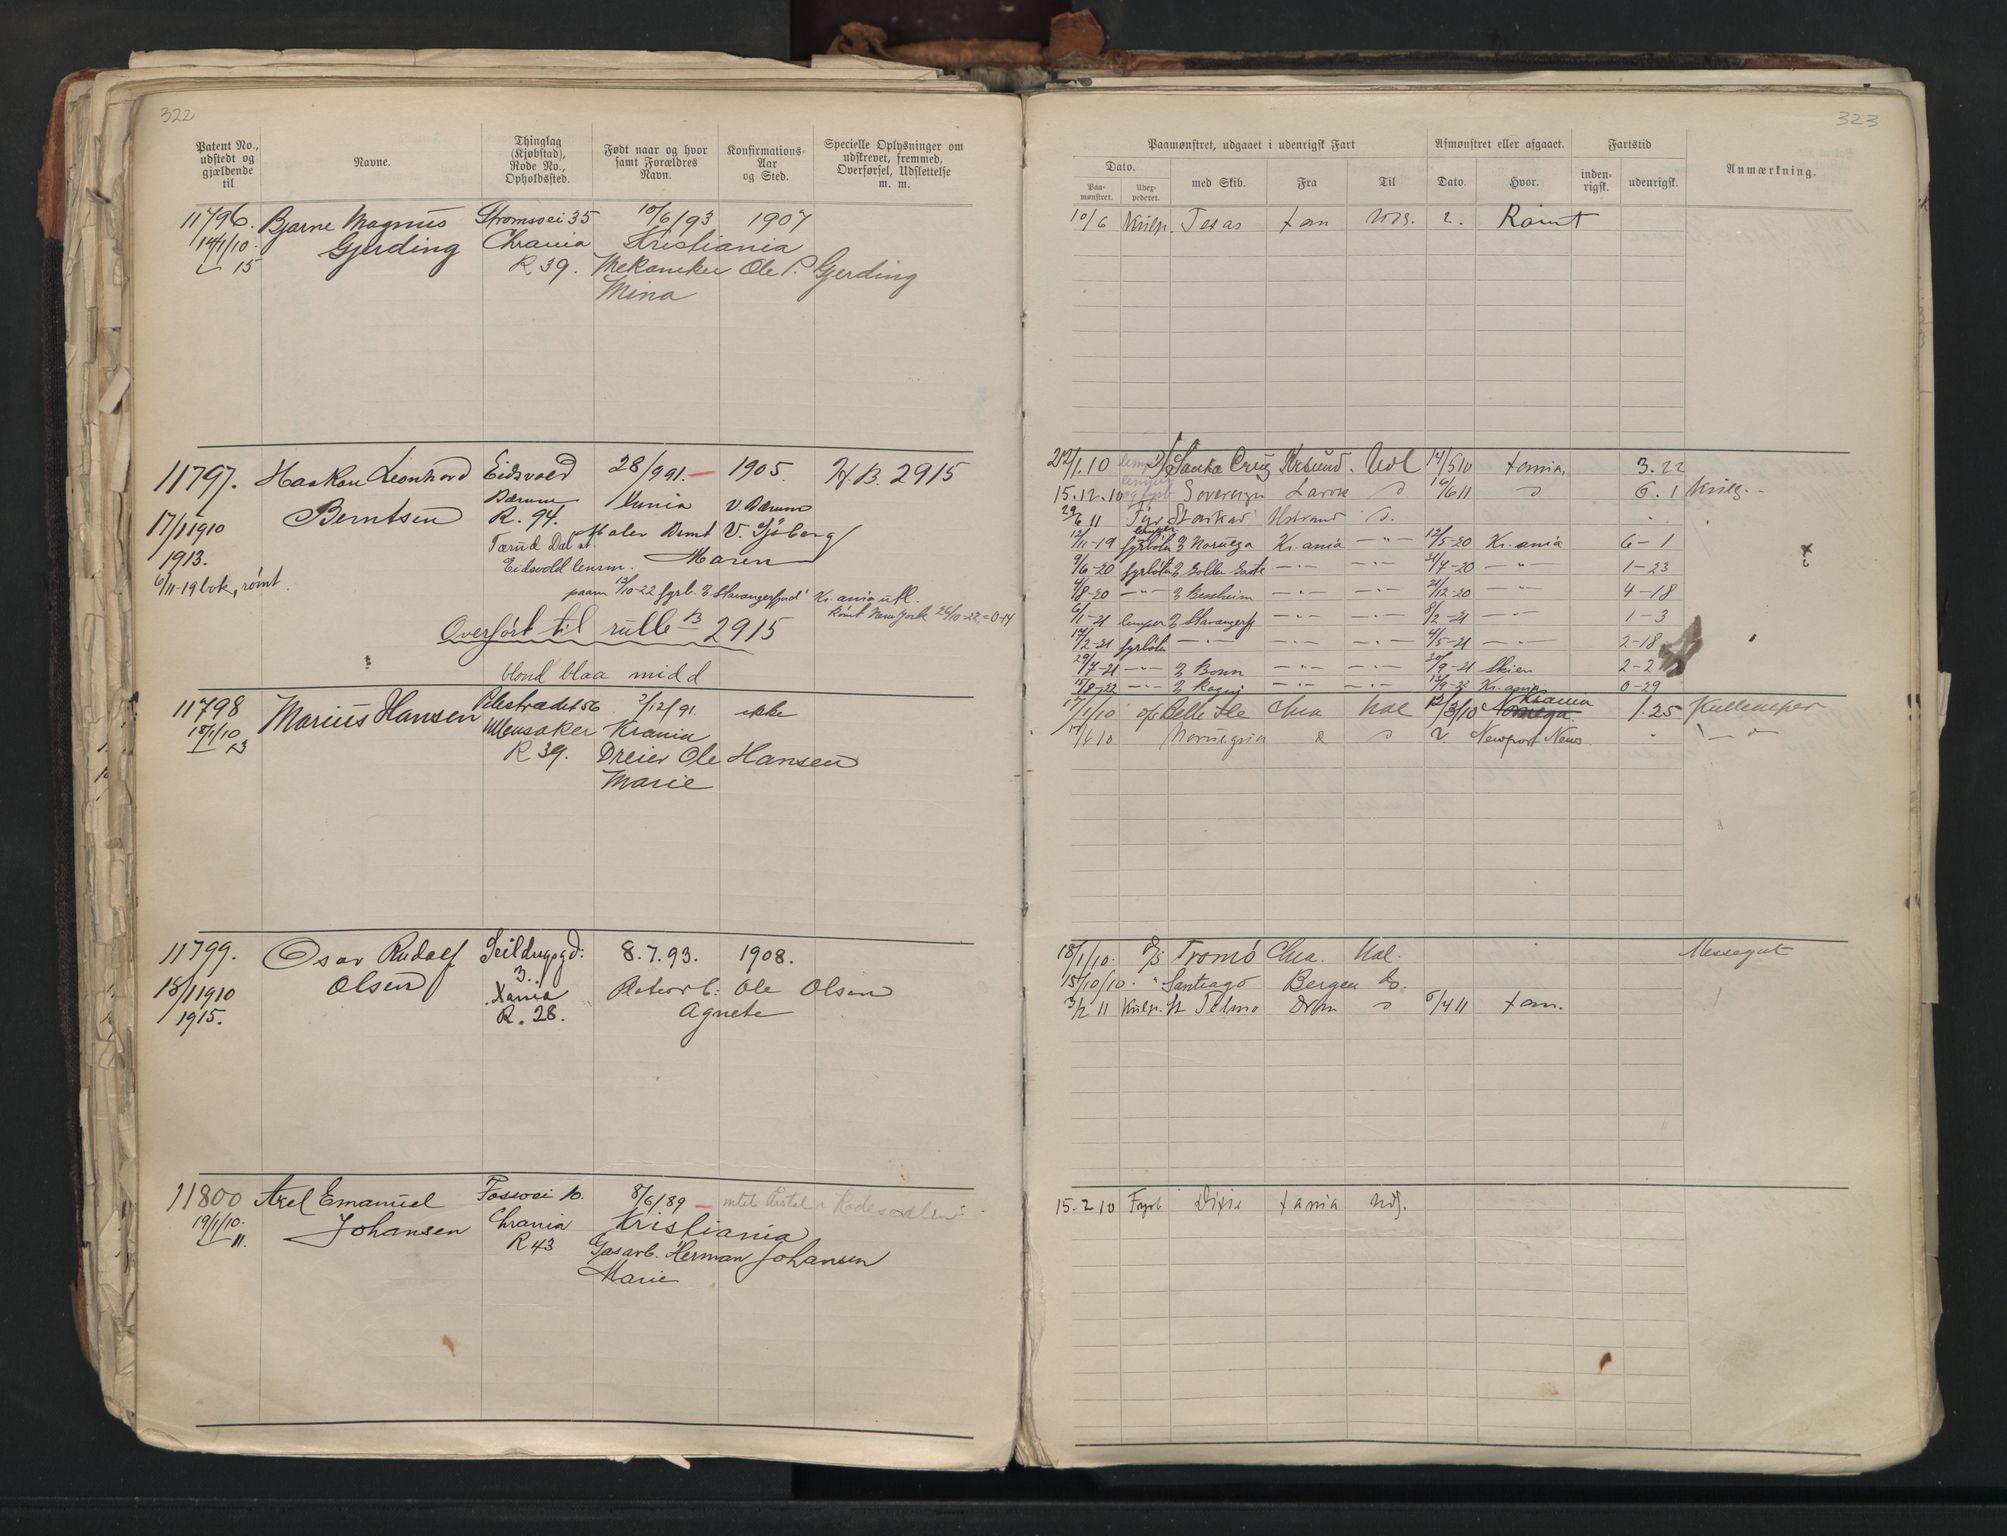 322
Patent No., udstedt og gjældende til
Navne.
Thinglag (Kjøbstad), Rode No., Opholdssted.
Født naar og hvor samt Forældres Navn.
Konfirmations-Aar og Sted.
Specielle Oplysninger om udskrevet, fremmed, Overførsel, Udslettelse m. m.
11796. Bjarne Magnus Strømsvei 35 10/6/93 1907
14/1/10. Gjerding Chrania Kristiania
15 R 39. Mekaniker Ole P. Gjerding
Mina
11797. Haakon Leonhard Eidsvold 28/9 91. — 1905. H.B. 2915
Berntsen Bærum Xania V. Bærum
17/1 1910 R. 94. Maler Bernt V. Sjøberg
1913. Tærud Dal st. Maren
Eidsvold lensm.
6/11-19 bok, rømt. paam 13/10-22 fyrb. D/S Stavangerfjord Kr.ania utl.
Rømt New York 26/10-22.=0-14
Overført til rulle B 2915
blond blaa midd
11798 Marius Hansen Pilestrædet 56 2/12/91. ikke
15/1/10 Ullensaker Krania
13 R 39. Dreier Ole Hansen
Marie
11799. Oscar Rudolf Seildugsgd: 8.7.93. 1908.
Olsen 3.
18/1 1910 Xania Ole Olsen
1915. R. 28. Agnete
11800 Axel Emanuel Fossvei 10. 8/6/89 —
19/1/10. Johansen Chrania Kristiania
11. R 43 Gasarb. Herman Johansen
Marie
323
Paamønstret, udgaaet i udenrigsk Fart
Afmønstret eller afgaaet.
Fartstid
Anmærkning.
Dato.
Paa-mønstret.
Udex-pederet.
med Skib.
Fra
Til
Dato.
Hvor.
inden-rigsk.
udenrigsk.
10/6 Kulp. Texas Xan Uds. ?. Rømt
22/1.10 lemp Santa Cruz Krsund. Udl 14/5 10 Xania, 3.22
15.12.10 Sovereign Larvik D 16/6 11 D 6.1
29/6 11 Fyr Starkad D.
12/11-19 fyrbøter D/S Noruega Kr.ania — " — 12/5-20 Kr.ania 6-1
9/6-20 fyrbøter D/S Golden Gate — " — — " — 31/7-20 — " — 1-23
4/8-20 — " — D/S Bessheim — " — — " — 21/12-20 — " — 4-18
6/1-21 lemper D/S Stavangerfj — " — — " — 8/2-21 — " — 1-3
17/2-21 fyrbøter — " — — " — — " — 4/5-21 — " — 2-18
29/7-21 — " — D/S Bonn — " — — " — 30/9-21 Skien 2-2
15/8-22 — " — — " — — " — 13/9-22 Kr.ania 0-29
17/1/10 Belle Ile Chra Udl 12/3/10 Krania 1.25 Kullemper
Noruega D ?. Newport News
18/1/10. D/S Tromø Chra. Udl. Messegut
15/10/10. " Santiago Bergen Do.
3/2 11 Kulp. St Telmo Drm D 5/4 11 Xan.
15.2.10 Fyrb Dixie Xania Udl.